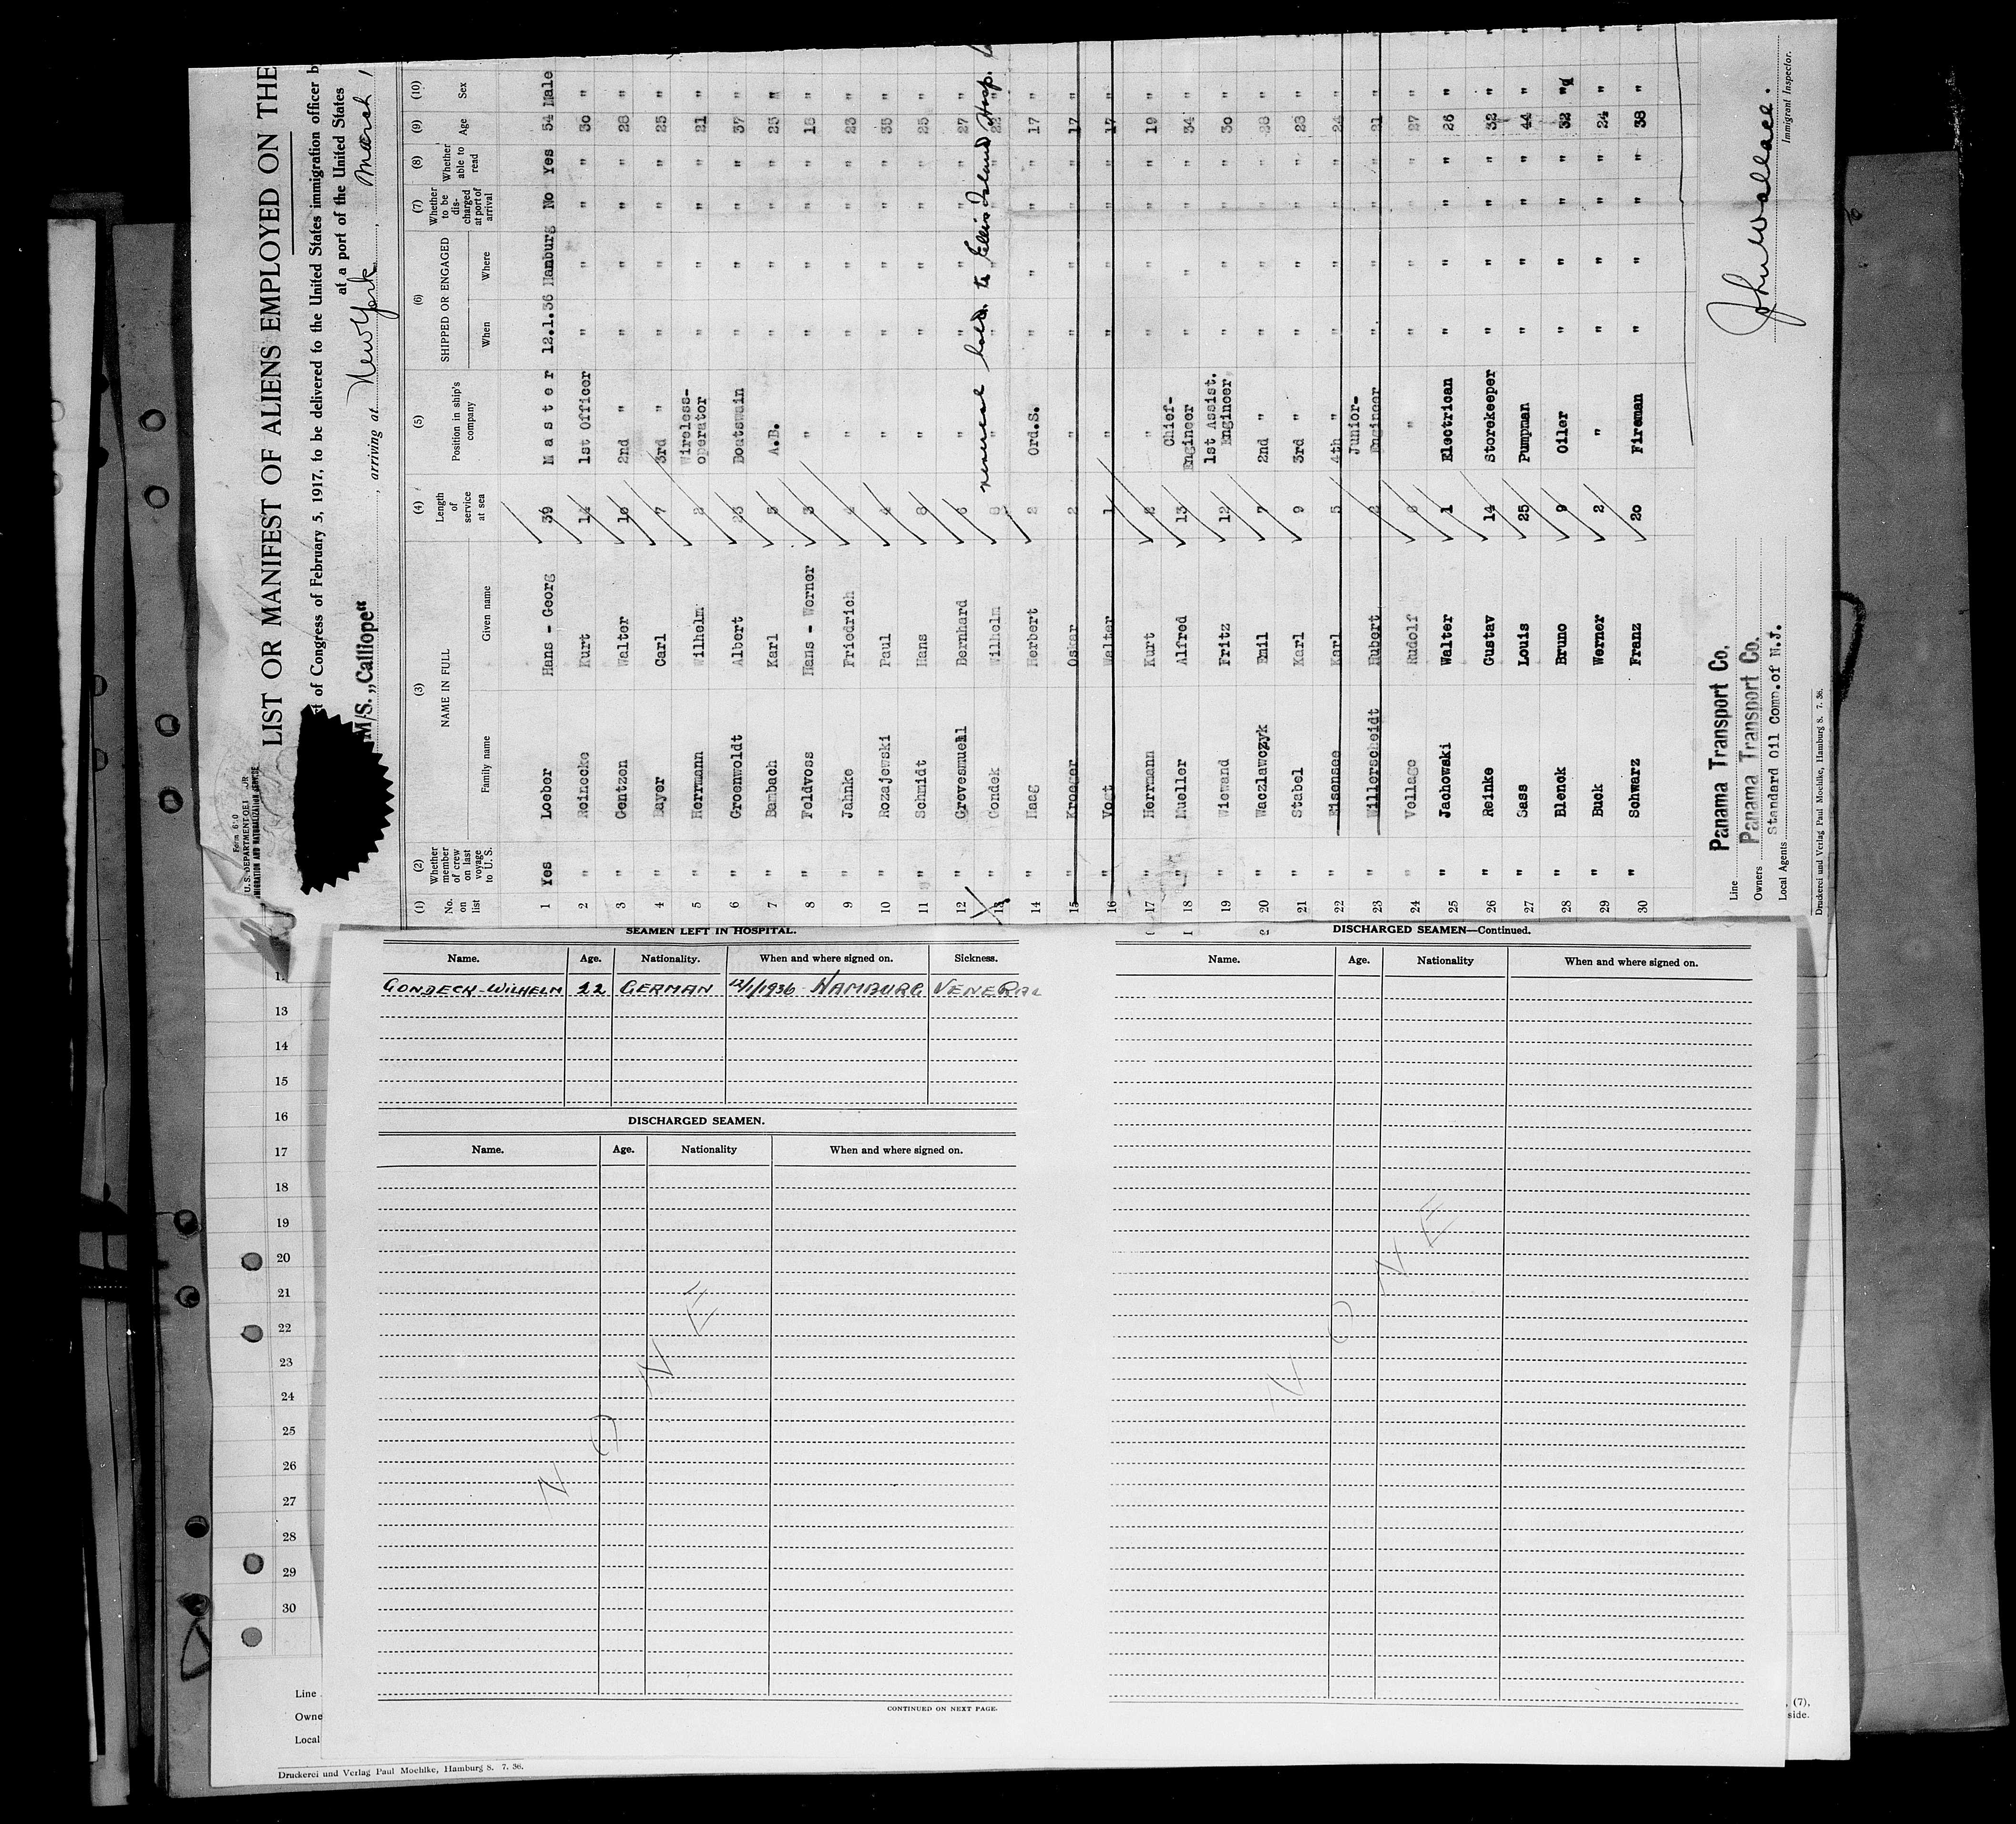 Form 680
U. S. DEPARTMENT OF
IMMIGRATION AND NATURALIZATION SERVICE
LIST OR MANIFEST OF ALIENS EMPLOYED ON THE
of Congress of February 5, 1917, to be delivered to the United States immigration officer b
at a port of the United States
M/S. „Calliope“ , arriving at New York , March 1
(1) (2) (3) (4) (5) (6) (7) (8) (9) (10)
No. on list Whether member of crew on last voyage to U. S. NAME IN FULL Length of service at sea Position in ship's company SHIPPED OR ENGAGED Whether to be dis-charged at port of arrival Whether able to read Age Sex
Family name Given name When Where
1 Yes Loeber Hans - Georg 39 Master 12.1.36 Hamburg No Yes 54 Male
2 " Reinecke Kurt 14 1st Officer " " " " 30 "
3 " Gentzen Walter 10 2nd " " " " " 28 "
4 " Bayer Carl 7 3rd " " " " " 25 "
5 " Herrmann Wilhelm Wireless-operator " " " " 21 "
6 " Groenwoldt Albert 23 Boatswain " " " " 37 "
7 " Bambach Karl 5 A.B. " " " " 23 "
8 " Feldvoss Hans - Werner 3 " " " " " 18 "
9 " Jahnke Friedrich 4 " " " " " 23 "
10 " Rozajewski Paul 4 " " " " " 35 "
11 " Schmidt Hans 8 " " " " " 25 "
12 " Grevesmuehl Bernhard 6 " " " " " 27 "
13 " Gondek Wilhelm 8 " venereal held to Ellis Island Hosp. 22 "
14 " Haag Herbert 2 Ord.S. " " " " 17 "
15 " Kroeger Oskar 2 " " " " " 17 "
16 " Vogt Walter 1 " " " " " 17 "
17 " Herrmann Kurt " " " " " 19 "
18 " Mueller Alfred 13 Chief-Engineer " " " " 34 "
19 " Wiewand Fritz 12 1st Assist. Engineer " " " " 30 "
20 " Waczlawczyk Emil 7 2nd " " " " " 28 "
21 " Stabel Karl 9 3rd " " " " " 23 "
22 " Eisensee Karl 5 4th " " " " " 24 "
23 " Willerscheidt Hubert 2 Junior-Engineer " " " " 21 "
24 " Vollage Rudolf 6 " " " " " 27 "
25 " Jachowski Walter 1 Electrican " " " " 26 "
26 " Reinke Gustav 14 Storekeeper " " " " 32 "
27 " Sass Louis 25 Pumpman " " " " 44 "
28 " Blenck Bruno 9 Oiler " " " " 32 "
29 " Buck Werner 2 " " " " " 24 "
30 " Schwarz Franz 20 Fireman " " " " 38 "
Line Panama Transport Co.
Owners Panama Transport Co.
Local Agents Standard Oil Comp. of N.J.
John Wallace.
Immigrant Inspector.
Druckerei und Verlag Paul Moehlke, Hamburg 8. 7. 36.
SEAMEN LEFT IN HOSPITAL.
Name. Age. Nationality. When and where signed on. Sickness.
GONDECK-WILHELM 22 GERMAN 12/1/1936 HAMBURG VENERAL
DISCHARGED SEAMEN.
Name. Age. Nationality When and where signed on.
NONE
CONTINUED ON NEXT PAGE.
DISCHARGED SEAMEN—Continued.
Name. Age. Nationality When and where signed on.
NONE
13
14
15
16
17
18
19
20
21
22
23
24
25
26
27
28
29
30
Line
Owne
Local
, (7),
side.
Druckerei und Verlag Paul Moehlke, Hamburg 8. 7. 36.